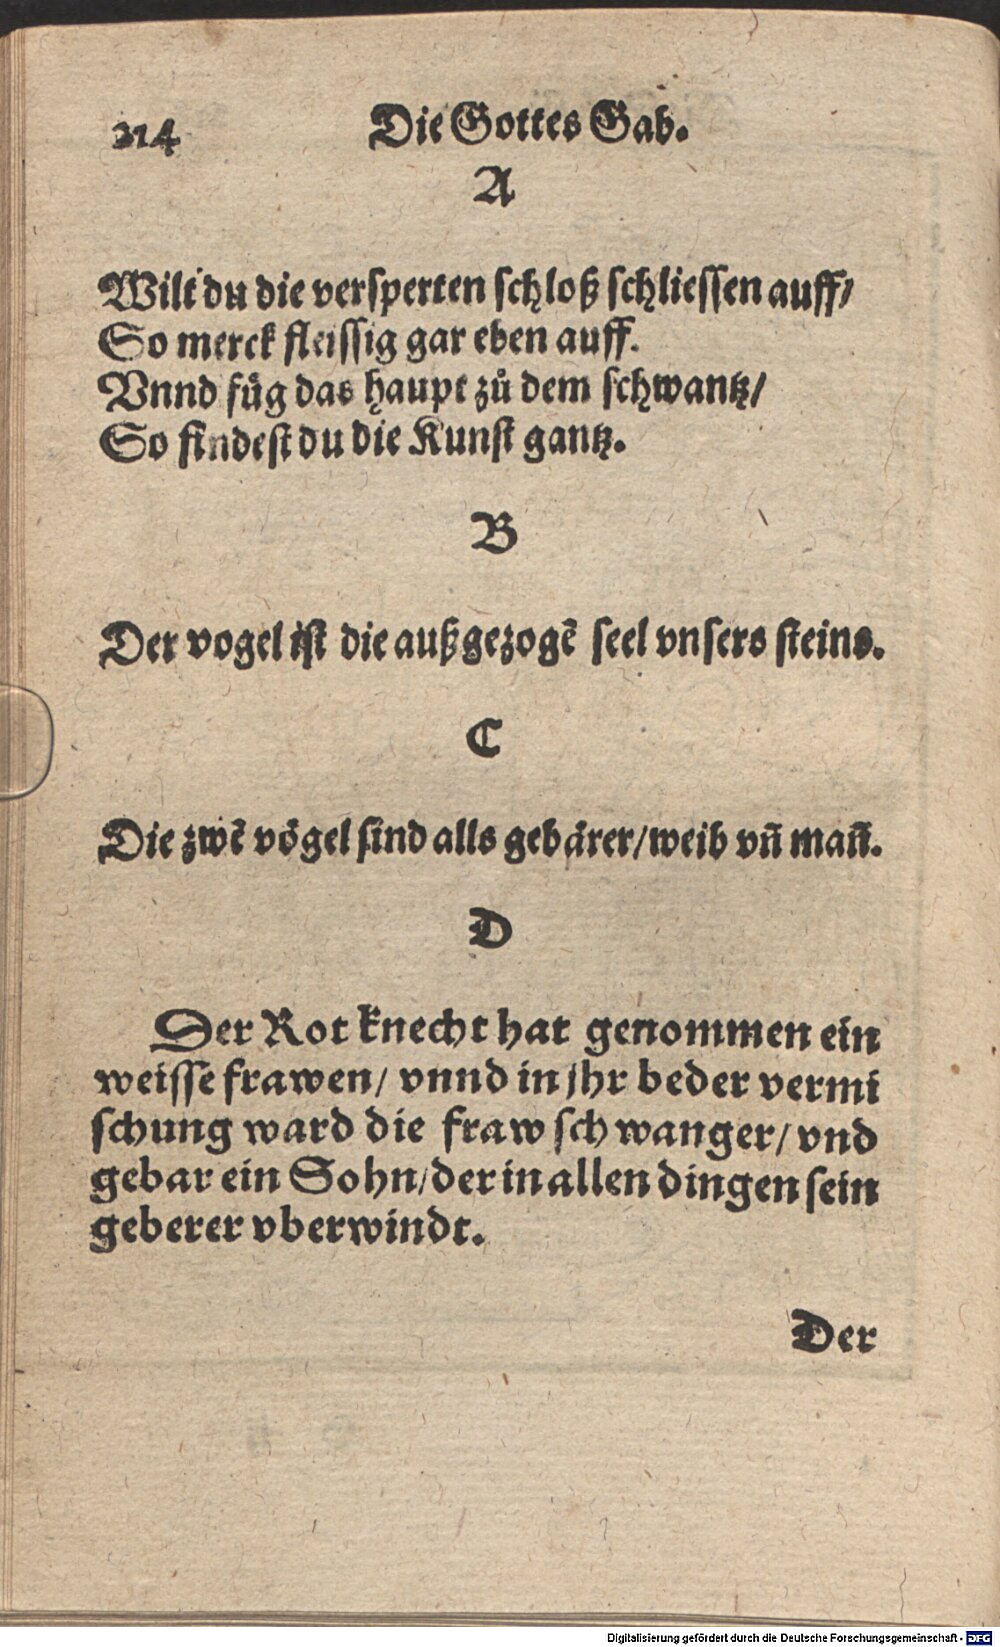 214 Die Gottes Gab.
A
Wilt du die versperten schloß schliessen auff/
So merck fleissig gar eben auff.
Vnnd füg das haupt zů dem schwantz/
So findest du die Kunst gantz.
B
Der vogel ist die außgezogẽ seel vnsers steins.
C
Die zwẽ vögel sind alls gebärer/weib vñ mañ.
D
Der Rot knecht hat genommen ein
weisse frawen/ vnnd in jhr beder vermi
schung ward die fraw schwanger/ vnd
gebar ein Sohn/der in allen dingen sein
geberer vberwindt.
Der
Digitalisierung gefördert durch die Deutsche Forschungsgemeinschaft - DFG